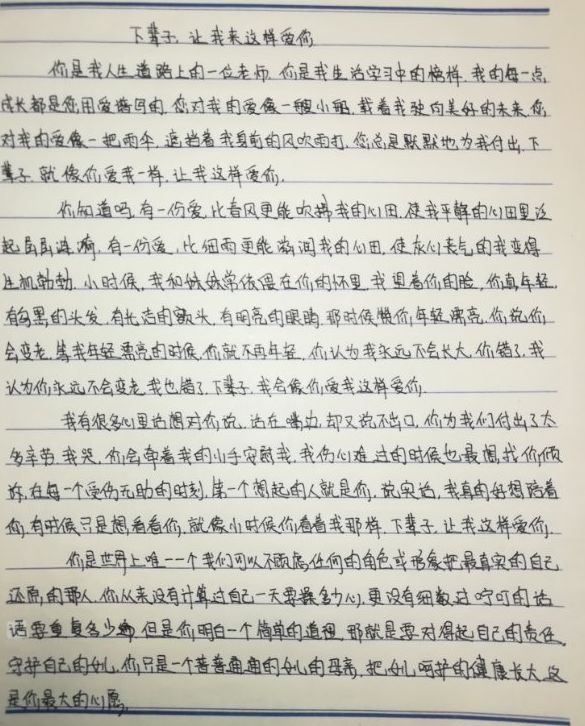 下辈子,让我来这样爱你
你是我人生道路上的一位老师,你是我生活学习中的榜样,我的每一点
成长都是您用爱谱写的,您对我的爱像一艘小船,载着我驶向美好的未来,您
对我的爱像一把雨伞,遮挡着我身前的风吹雨打,您总是默默地为我付出,下
辈子,就像你爱我一样,让我这样爱你,
你知道吗,有一份爱,比春风更能吹拂我的心田,使我平静的心田里泛
起层层涟漪,有一份爱,比细雨更能滋润我的心田,使灰心丧气的我变得
生机勃勃,小时候,我和妹妹常依偎在你的怀里,我望着你的脸,你真年轻,
有乌黑的头发,有光洁的额头,有明亮的眼睛,那时候你年轻漂亮,你说你
会变老,等我年轻漂亮的时候,你就不再年轻,你认为我永远不会长大,你错了,我
认为你永远不会变老,我也错了,下辈子,我会像你爱我这样爱你,
我有很多心里话想对你说,话在嘴边,却又说不出口,你为我们付出了太
多辛劳,我哭,你会牵着我的小手安慰我,我伤心难过的时候也最想找你倾
诉,在每一个受伤无助的时刻,第一个想起的人就是你,说实话,我真的好想陪着
你,有时候只是想看看你,就像小时候你看着我那样,下辈子,让我这样爱你,
你是世界上唯一一个我们可以不顾虑任何的角色或形象把最真实的自己
还原的那人,你从来没有计算过自己一天要操多少心,更没有细数过叮咛的话
语要重复多少遍,但是你明白一个简单的道理,那就是要对得起自己的责任,
守护自己的女儿,你只是一个普普通通的女儿的母亲,把女儿呵护的健康长大,这
是你最大的心愿,